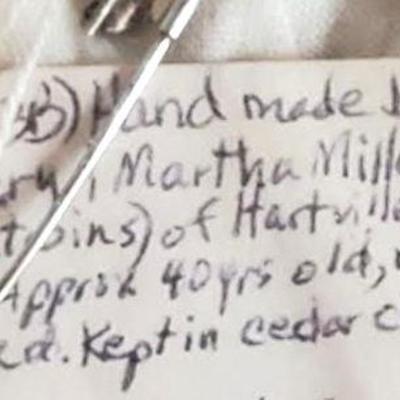 Hand made
Martha Mill
of Hartvill
Approx 40yrs old,
Kept in cedar c